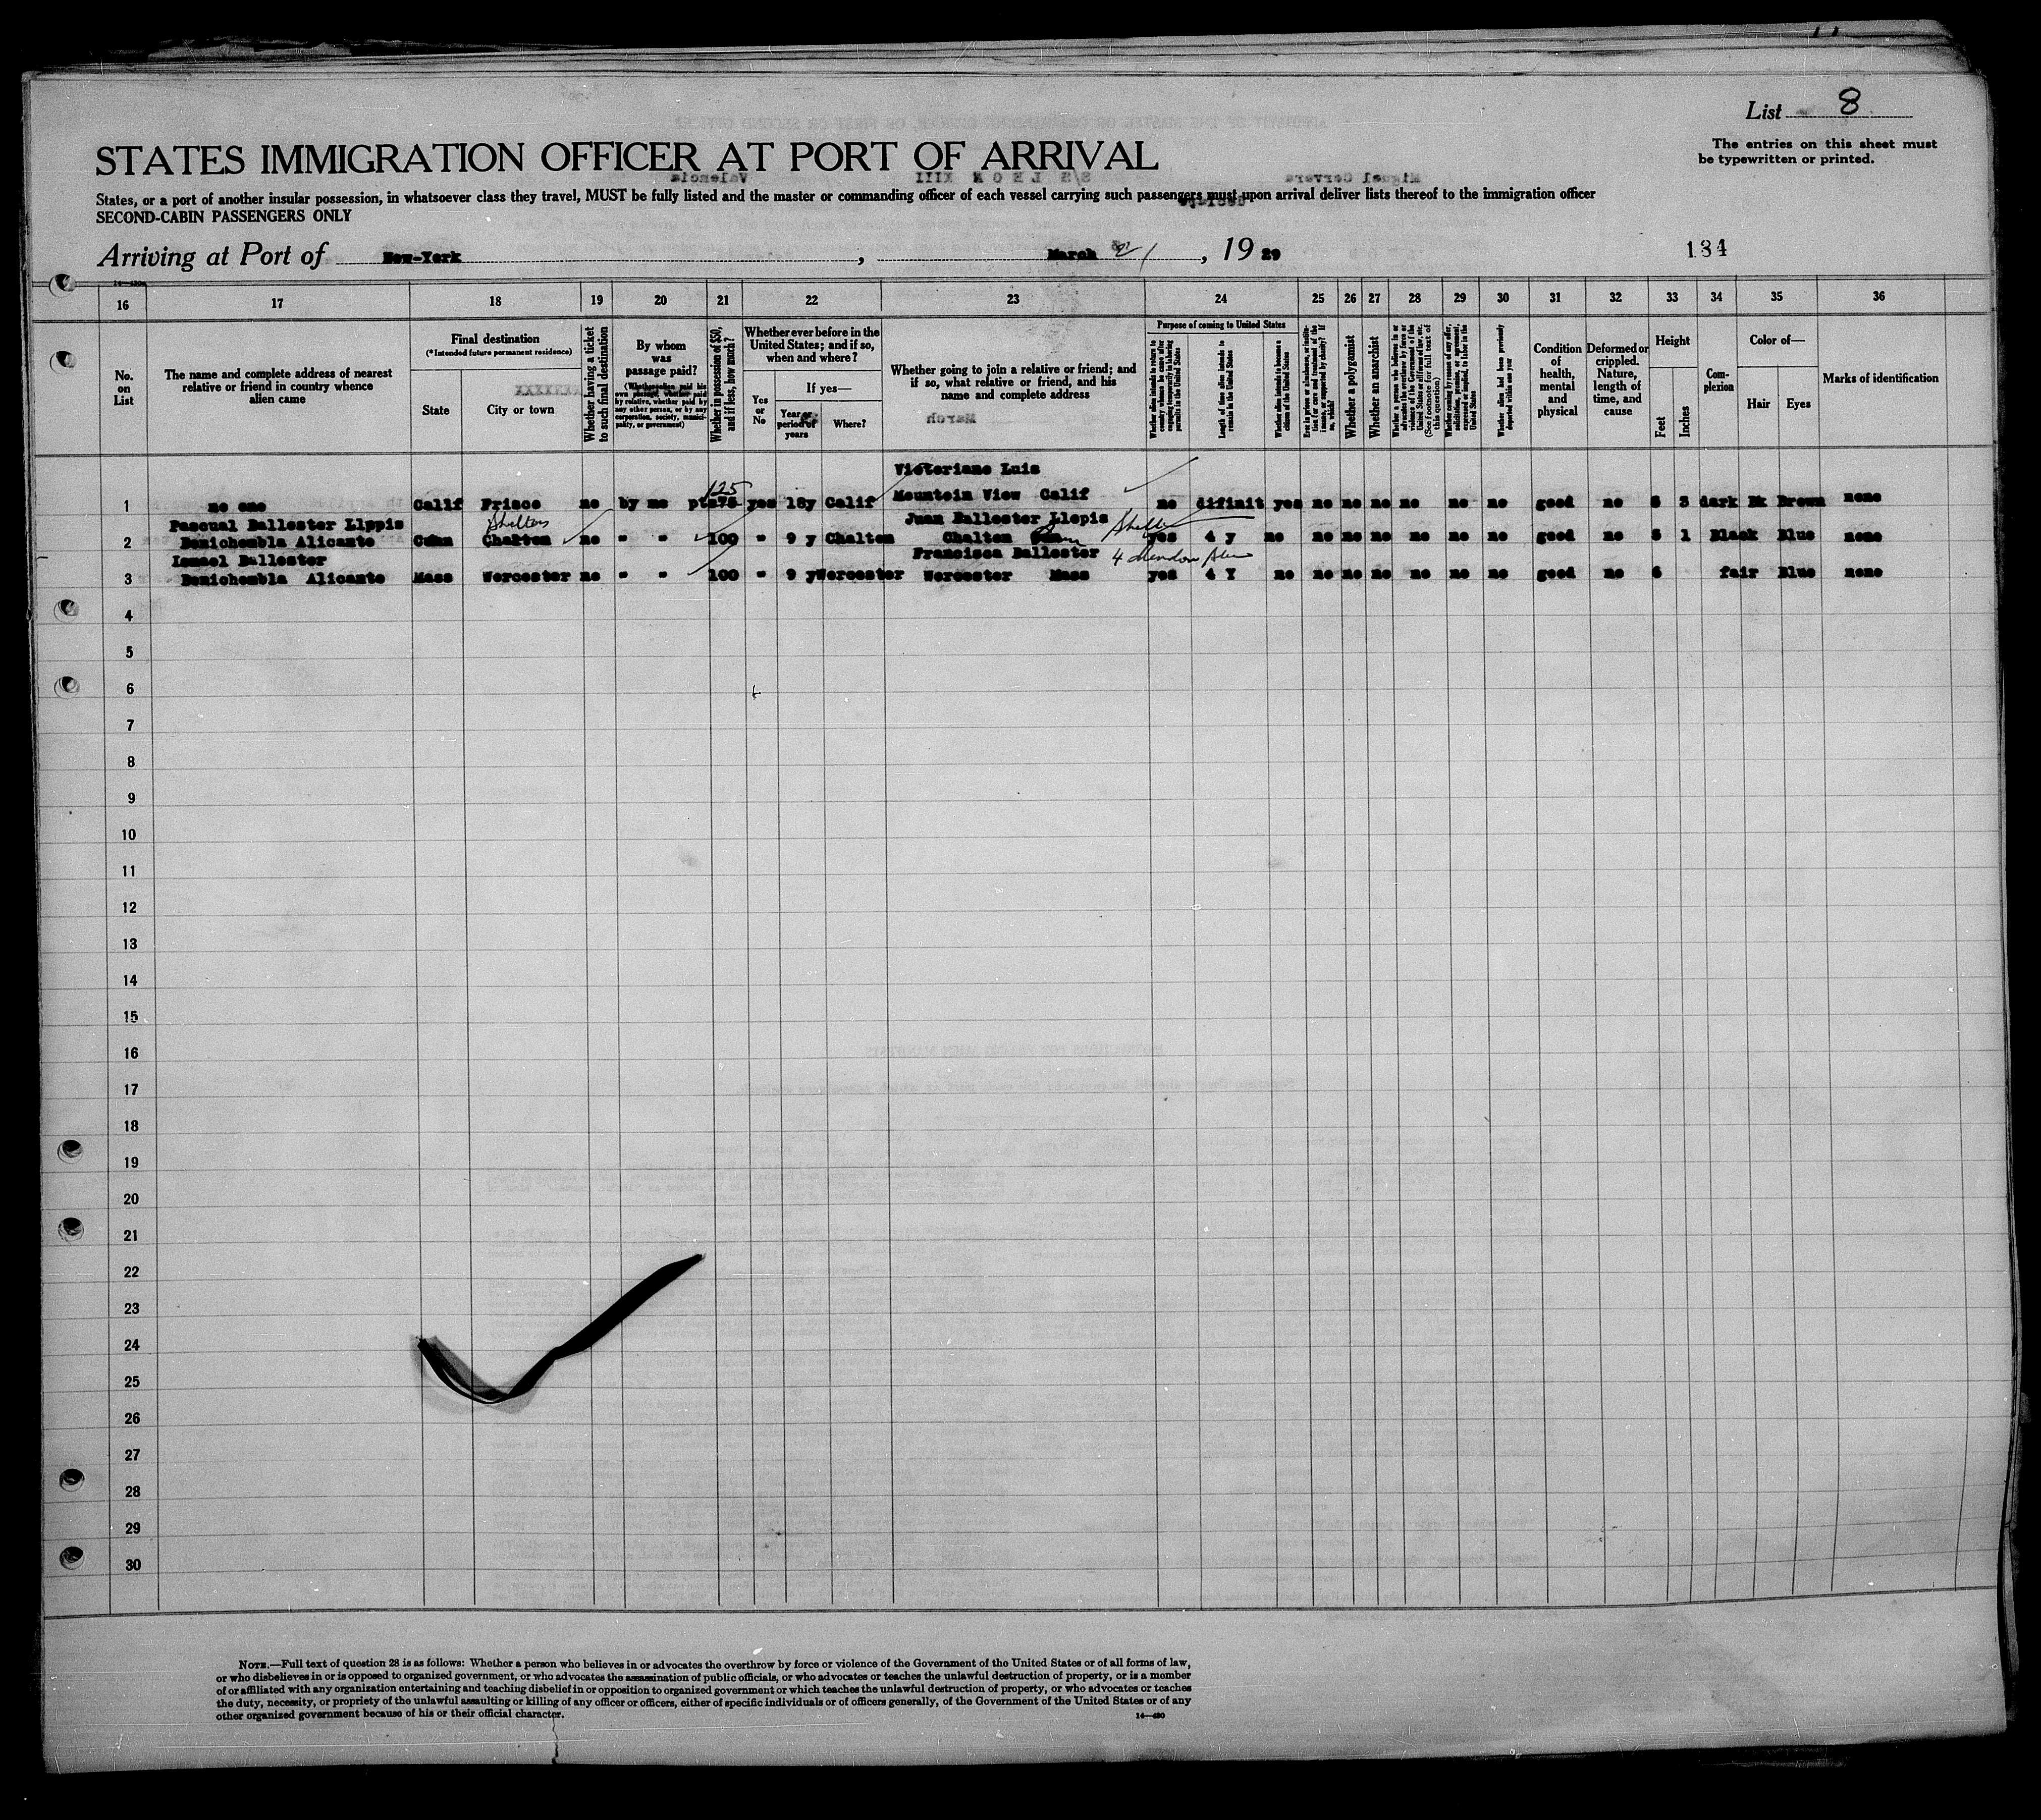 List 8
The entries on this sheet must
be typewritten or printed.
STATES IMMIGRATION OFFICER AT PORT OF ARRIVAL
States, or a port of another insular possession, in whatsoever class they travel, MUST be fully listed and the master or commanding officer of each vessel carrying such passengers must upon arrival deliver lists thereof to the immigration officer
SECOND-CABIN PASSENGERS ONLY
Arriving at Port of New-York, March 21, 1929
184
16 17 18 19 20 21 22 23 24 25 26 27 28 29 30 31 32 33 34 35 36
No. on List
The name and complete address of nearest relative or friend in country whence alien came
Final destination
(*Intended future permanent residence)
State
City or town
Whether having a ticket to such final destination
By whom was passage paid?
(Whether alien paid his own passage, whether paid by relative, whether paid by any other person, or by any corporation, society, municipality, or government)
Whether in possession of $50, and if less, how much?
Whether ever before in the United States; and if so, when and where?
Yes or No
If yes—
Year or period of years
Where?
Whether going to join a relative or friend; and if so, what relative or friend, and his name and complete address
Purpose of coming to United States
Whether alien intends to return to country whence he came after engaging temporarily in laboring pursuits in the United States
Length of time alien intends to remain in the United States
Whether alien intends to become a citizen of the United States
Ever in prison or almshouse, or institution for care and treatment of the insane, or supported by charity? If so, which?
Whether a polygamist
Whether an anarchist
Whether a person who believes in or advocates the overthrow by force or violence of the Government of the United States or all forms of law, etc. (See footnote for full text of this question)
Whether coming by reason of any offer, solicitation, promise, or agreement, expressed or implied, to labor in the United States
Whether alien had been previously deported within one year
Condition of health, mental and physical
Deformed or crippled. Nature, length of time, and cause
Height
Feet
Inches
Complexion
Color of—
Hair
Eyes
Marks of identification
Victoriano Luis
125
1 no one Calif Frisco no by me pts 75 yes 18y Calif Mountain View Calif no difinit yes no no no no no no good no 5 3 dark Bk Brown none
Pascual Ballester Llopis Shelton Juan Ballester Llopis Shelton
2 Benichembla Alicante Conn Chalton no " " 100 " 9 y Chalton Chalton Conn yes 4 y no no no no no no no good no 5 1 Black Blue none
Ismael Ballester Francisca Ballester 4
3 Benichembla Alicante Mass Worcester no " " 100 " 9 y Worcester Worcester Mass yes 4 Y no no no no no no no good no 6 fair Blue none
4
5
6
7
8
9
10
11
12
13
14
15
16
17
18
19
20
21
22
23
24
25
26
27
28
29
30
NOTE.—Full text of question 28 is as follows: Whether a person who believes in or advocates the overthrow by force or violence of the Government of the United States or of all forms of law,
or who disbelieves in or is opposed to organized government, or who advocates the assassination of public officials, or who advocates or teaches the unlawful destruction of property, or is a member
of or affiliated with any organization entertaining and teaching disbelief in or opposition to organized government or which teaches the unlawful destruction of property, or who advocates or teaches
the duty, necessity, or propriety of the unlawful assaulting or killing of any officer or officers, either of specific individuals or of officers generally, of the Government of the United States or of any
other organized government because of his or their official character.
14—430